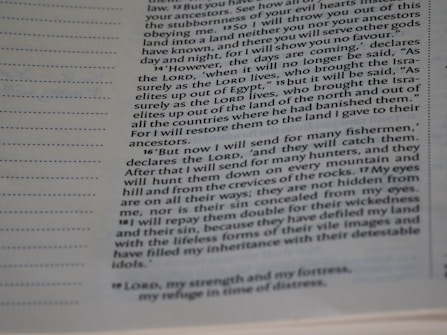 law. 12 But you have
your ancestors. See how all of
the stubbornness of your evil hearts instead
obeying me. 13 So I will throw you out of this
land into a land neither you nor your ancestors
have known, and there you will serve other gods
day and night, for I will show you no favour.”
14 ‘However, the days are coming,’ declares
the LORD, ‘when it will no longer be said, “As
surely as the LORD lives, who brought the Isra-
elites up out of Egypt,” 15 but it will be said, “As
surely as the LORD lives, who brought the Isra-
elites up out of the land of the north and out of
all the countries where he had banished them.”
For I will restore them to the land I gave to their
ancestors.
16 ‘But now I will send for many fishermen,’
declares the LORD, ‘and they will catch them.
After that I will send for many hunters, and they
will hunt them down on every mountain and
hill and from the crevices of the rocks. 17 My eyes
are on all their ways; they are not hidden from
me, nor is their sin concealed from my eyes.
18 I will repay them double for their wickedness
and their sin, because they have defiled my land
with the lifeless forms of their vile images and
have filled my inheritance with their detestable
idols.’
19 LORD, my strength and my fortress,
my refuge in time of distress,